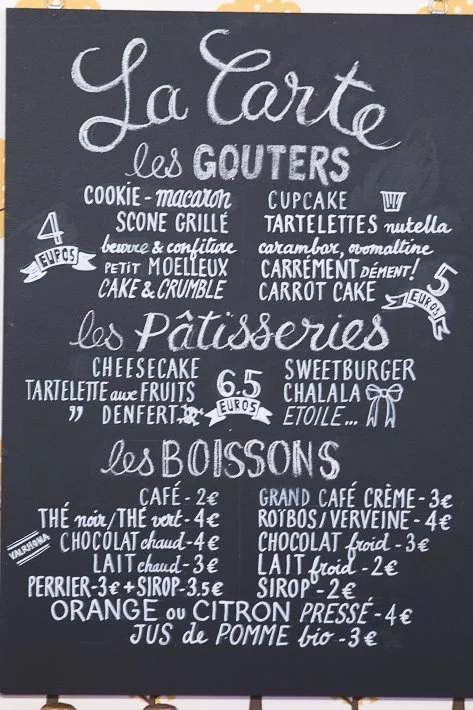 La Carte
les GOUTERS
COOKIE - macaron
SCONE GRILLÉ
beurre & confiture
PETIT MOELLEUX
CAKE & CRUMBLE
4
EUROS
CUPCAKE
TARTELETTES nutella
carambar, ovomaltine
CARRÉMENT DÉMENT!
CARROT CAKE
5
EUROS
les Pâtisseries
CHEESECAKE
TARTELETTE aux FRUITS
" DENFERT
6.5
EUROS
SWEETBURGER
CHALALA
ETOILE...
les BOISSONS
CAFÉ - 2€
THÉ noir/THÉ vert - 4€
VALRHONA
CHOCOLAT chaud - 4€
LAIT chaud - 3€
PERRIER - 3€ + SIROP - 3.5€
GRAND CAFÉ CRÈME - 3€
ROÏBOS/VERVEINE - 4€
CHOCOLAT froid - 3€
LAIT froid - 2€
SIROP - 2€
ORANGE ou CITRON PRESSÉ - 4€
JUS de POMME bio - 3€